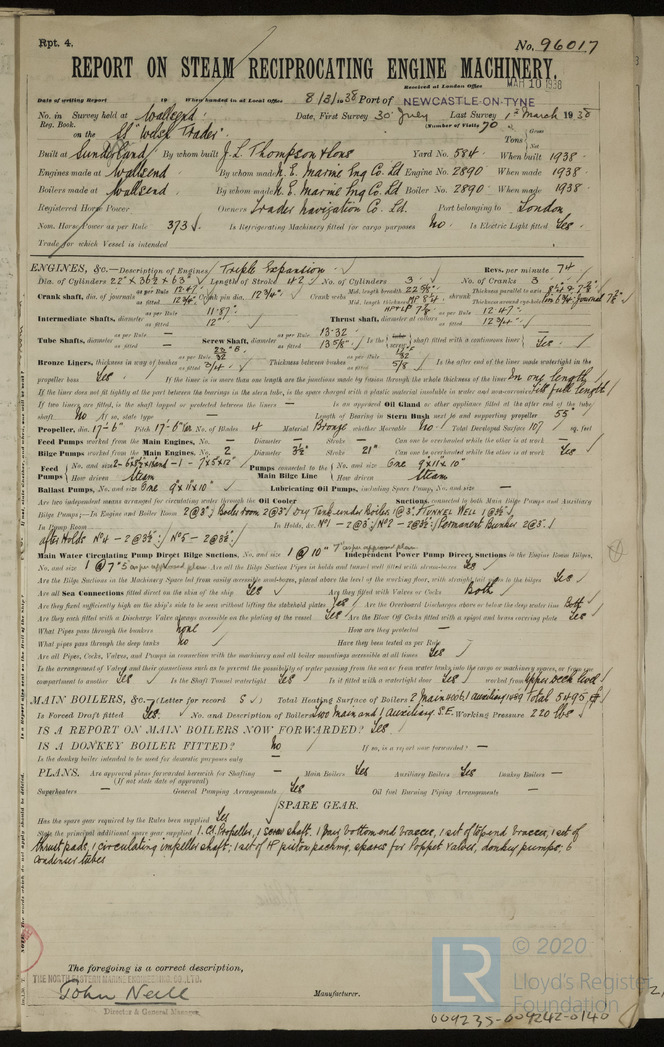 Rpt. 4.
No. 96017
REPORT ON STEAM RECIPROCATING ENGINE MACHINERY.
Received at London Office MAR 10 1938
Date of writing Report 19 When handed in at Local Office 8/3/1938 Port of NEWCASTLE-ON-TYNE
No. in Survey held at Wallsend Date, First Survey 30 July Last Survey 1st March 1938
Reg. Book. (Number of Visits 70
on the "Welsh Trader" Tons Gross Net
Built at Sunderland By whom built J. L. Thompson & Sons Yard No. 584 When built 1938
Engines made at Wallsend By whom made N. E. Marine Eng Co. Ld Engine No. 2890 When made 1938
Boilers made at Wallsend By whom made N. E. Marine Eng Co. Ld Boiler No. 2890 When made 1938
Registered Horse Power Owners Trader Navigation Co. Ld. Port belonging to London
Nom. Horse Power as per Rule 373 Is Refrigerating Machinery fitted for cargo purposes No. Is Electric Light fitted Yes
Trade for which Vessel is intended
ENGINES, &c.—Description of Engines Triple Expansion Revs. per minute 74
Dia. of Cylinders 22" x 36½ x 63" Length of Stroke 42 No. of Cylinders 3 No. of Cranks 3
Crank shaft, dia. of journals as per Rule 12.47 as fitted 12¾" Crank pin dia. 12¾" Crank webs Mid. length breadth Mid. length thickness shrunk Thickness parallel to axis Thickness around eye-hole
Intermediate Shafts, diameter as per Rule 11.87" as fitted 12" Thrust shaft, diameter at collars as per Rule 12.47 as fitted 12¾"
Tube Shafts, diameter as per Rule — as fitted — Screw Shaft, diameter as per Rule 13.32 as fitted 13⅝" Is the screw shaft fitted with a continuous liner Yes
Bronze Liners, thickness in way of bushes as per Rule as fitted 3/4" Thickness between bushes as per Rule as fitted 5/8 Is the after end of the liner made watertight in the
propeller boss Yes If the liner is in more than one length are the junctions made by fusion through the whole thickness of the liner In one length
If the liner does not fit tightly at the part between the bearings in the stern tube, is the space charged with a plastic material insoluble in water and non-corrosive full length
If two liners are fitted, is the shaft lapped or protected between the liners — Is an approved Oil Gland or other appliance fitted at the after end of the tube
shaft No If so, state type — Length of Bearing in Stern Bush next to and supporting propeller 55"
Propeller, dia. 17'-6" Pitch No. of Blades 4 Material Bronze whether Moveable No Total Developed Surface 107 sq. feet
Feed Pumps worked from the Main Engines, No. — Diameter — Stroke — Can one be overhauled while the other is at work —
Bilge Pumps worked from the Main Engines, No. 2 Diameter 3½" Stroke 21" Can one be overhauled while the other is at work Yes
Feed Pumps No. and size How driven Steam Pumps connected to the Main Bilge Line No. and size One 9"x11"x10" How driven Steam
Ballast Pumps, No. and size One 9"x11"x10" Lubricating Oil Pumps, including Spare Pump, No. and size —
Are two independent means arranged for circulating water through the Oil Cooler Suctions, connected to both Main Bilge Pumps and Auxiliary
Bilge Pumps;—In Engine and Boiler Room 2@3"; Boiler room 2@3"; Dry Tank under boiler 1@3"; TUNNEL WELL 1@3½";
In Pump Room In Holds, &c. No1 - 2@3"; No2 - 2@3½"; Permanent Bunker 2@3";
After Holds No4 - 2@3½"; No5 - 2@3½";
Main Water Circulating Pump Direct Bilge Suctions, No. and size 1 @ 10" Independent Power Pump Direct Suctions to the Engine Room Bilges,
No. and size Are all the Bilge Suction Pipes in holds and tunnel well fitted with strum-boxes Yes
Are the Bilge Suctions in the Machinery Space led from easily accessible mud-boxes, placed above the level of the working floor, with straight tail pipes to the bilges Yes
Are all Sea Connections fitted direct on the skin of the ship Yes Are they fitted with Valves or Cocks Both
Are they fixed sufficiently high on the ship's side to be seen without lifting the stokehold plates Yes Are the Overboard Discharges above or below the deep water line Both
Are they each fitted with a Discharge Valve always accessible on the plating of the vessel Yes Are the Blow Off Cocks fitted with a spigot and brass covering plate Yes
What Pipes pass through the bunkers None How are they protected —
What pipes pass through the deep tanks No Have they been tested as per Rule —
Are all Pipes, Cocks, Valves, and Pumps in connection with the machinery and all boiler mountings accessible at all times Yes
Is the arrangement of Valves and their connections such as to prevent the possibility of water passing from the sea or from water tanks into the cargo or machinery spaces, or from one
compartment to another Yes Is the Shaft Tunnel watertight Yes Is it fitted with a watertight door Yes worked from Upper deck level
MAIN BOILERS, &c.—(Letter for record S) Total Heating Surface of Boilers 2 Main 4006; 1 auxiliary 1489 Total 5495 #
Is Forced Draft fitted Yes. No. and Description of Boilers Two main and 1 auxiliary S.E. Working Pressure 220 lbs
IS A REPORT ON MAIN BOILERS NOW FORWARDED? Yes
IS A DONKEY BOILER FITTED? No If so, is a report now forwarded? —
Is the donkey boiler intended to be used for domestic purposes only —
PLANS. Are approved plans forwarded herewith for Shafting — Main Boilers Yes Auxiliary Boilers Yes Donkey Boilers —
(If not state date of approval)
Superheaters — General Pumping Arrangements Yes Oil fuel Burning Piping Arrangements —
SPARE GEAR.
Has the spare gear required by the Rules been supplied Yes
State the principal additional spare gear supplied 1 C.I. Propeller, 1 screw shaft, 1 pair bottom end brasses, 1 set of top end brasses, 1 set of
thrust pads, 1 circulating impeller shaft; 1 set of HP piston packing, spares for Poppet valves, donkey pumps; 6
condenser tubes
The foregoing is a correct description,
THE NORTH EASTERN MARINE ENGINEERING CO. LTD.
John Neill
Manufacturer.
Director & General Manager
LR © 2020
Lloyd's Register
Foundation
009235-009242-0140